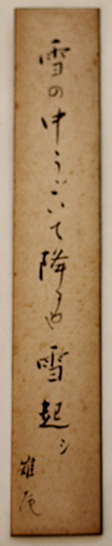 雪の中うごいて降るや雪起シ
雄